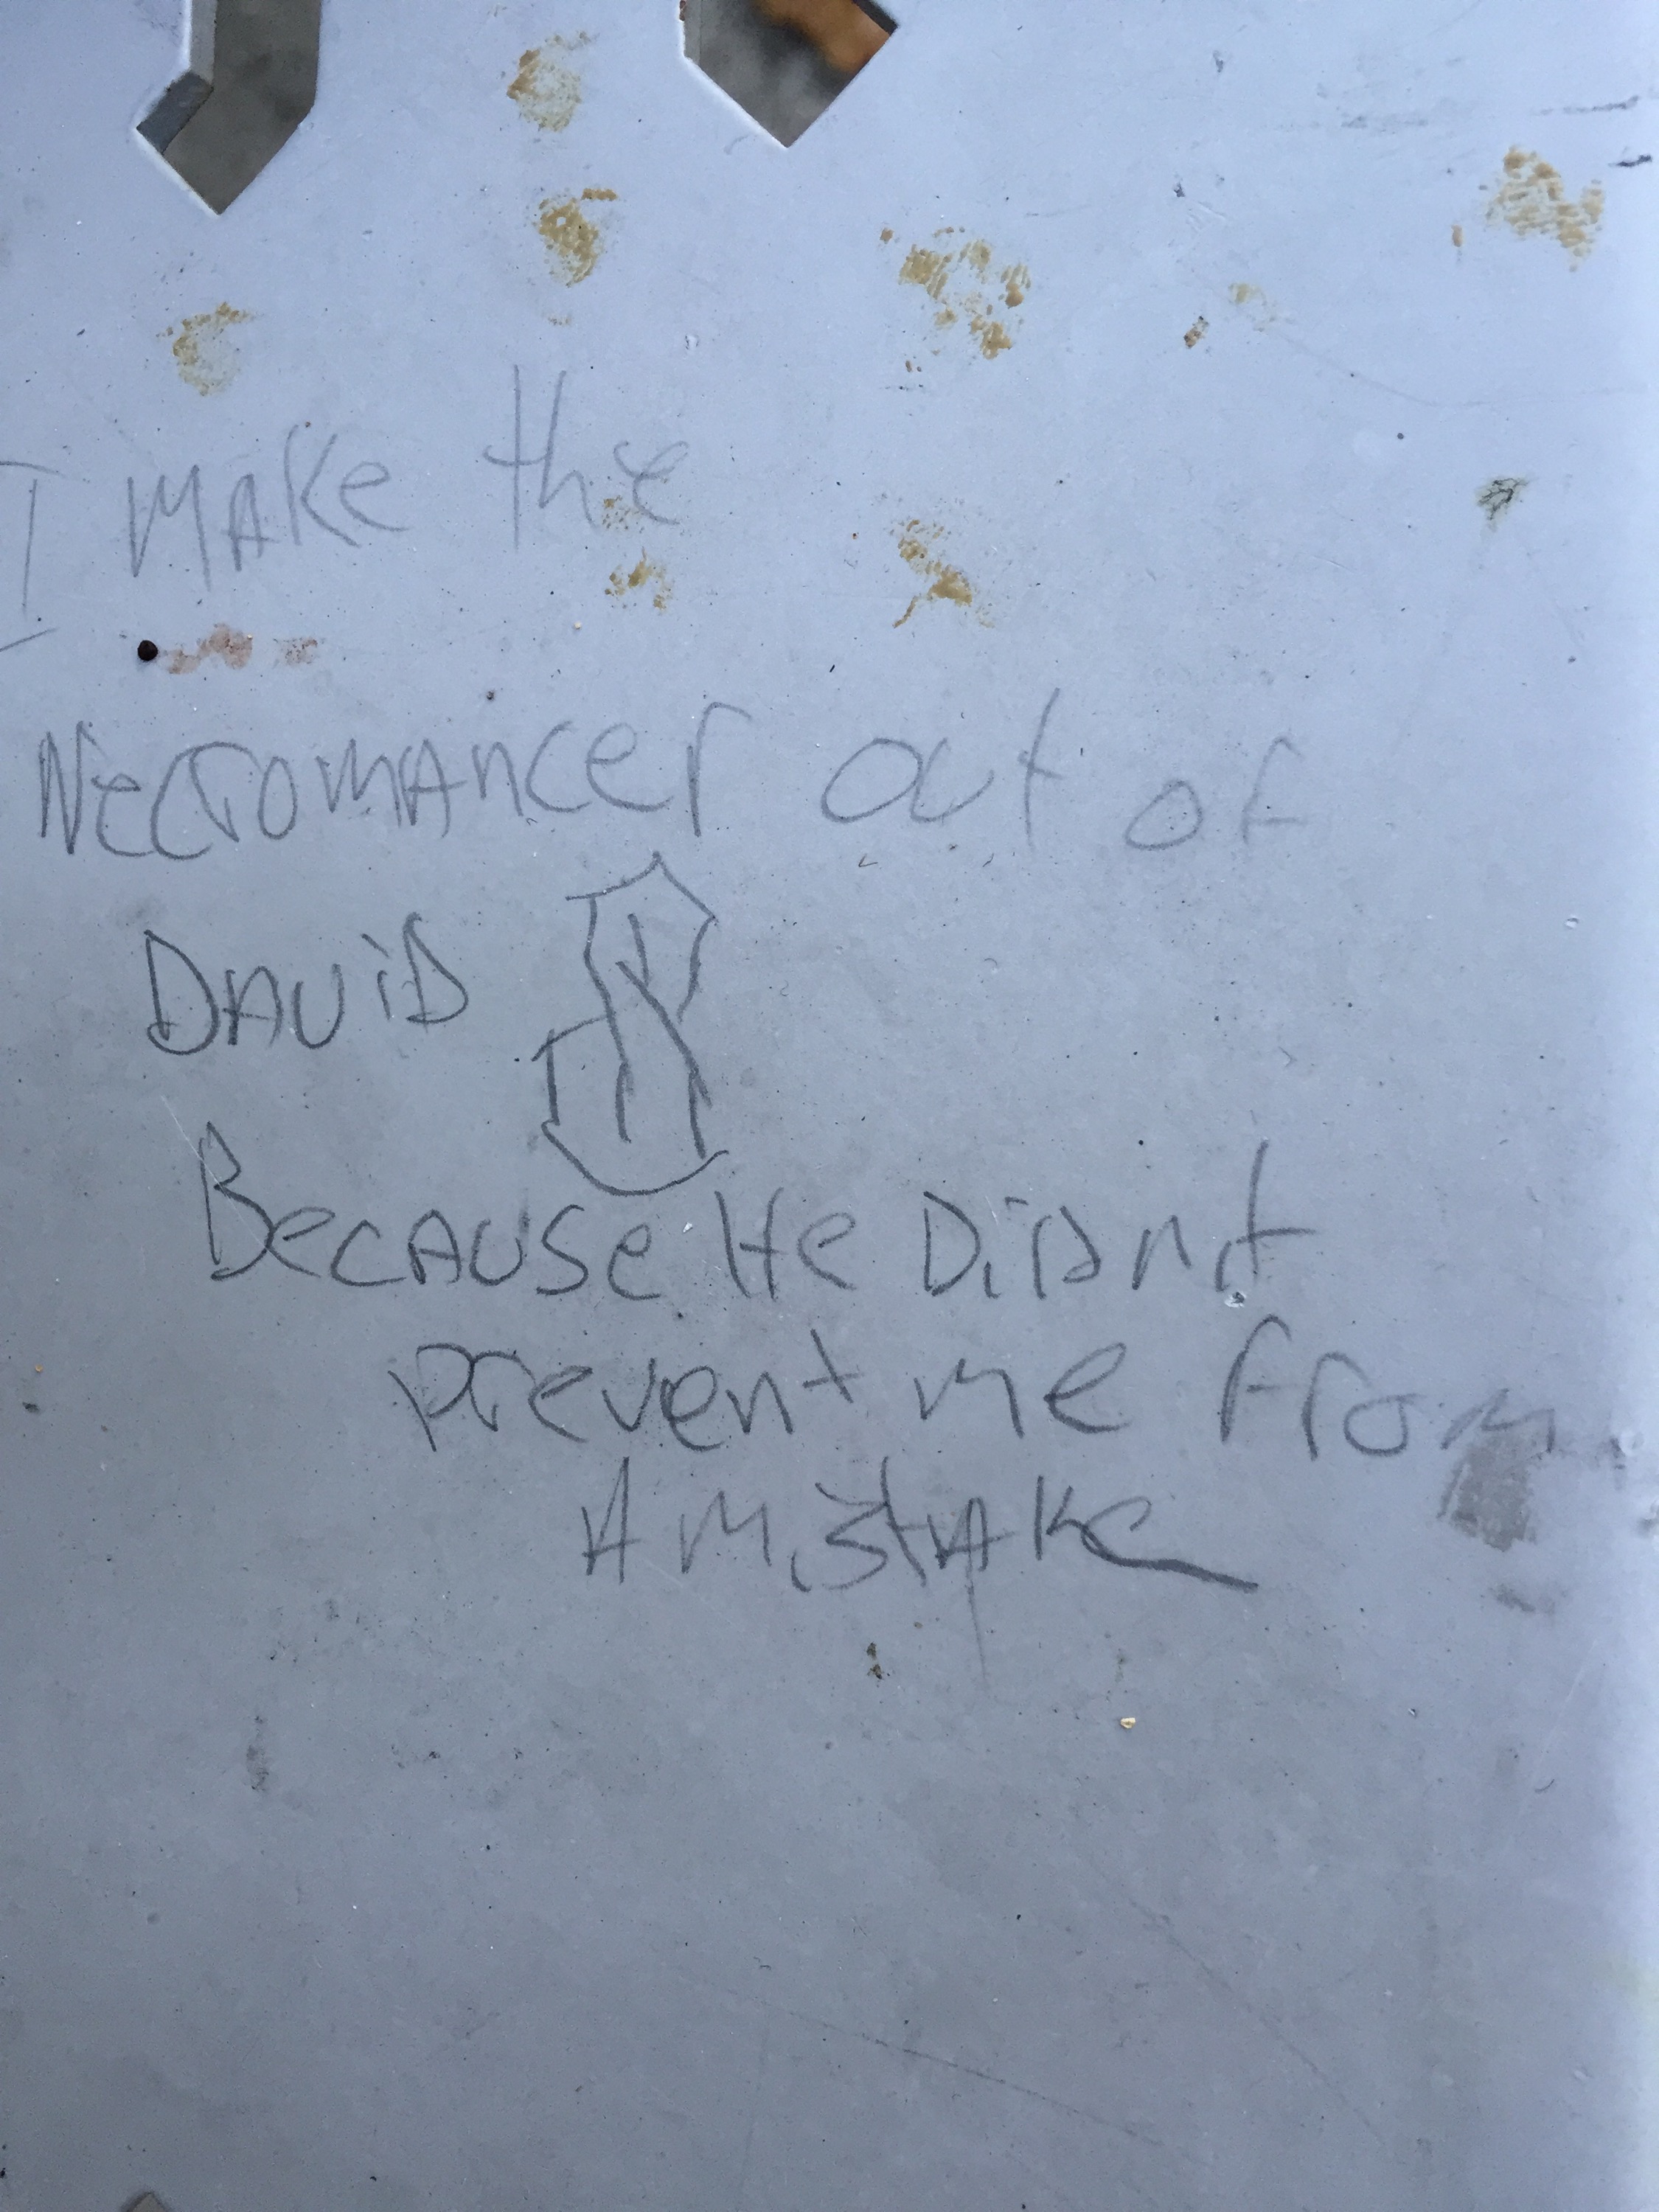 I MAKe the
NecromANcer out of
DAViD
BecAUSe He DiDnt
prevent me from
A mistAKe